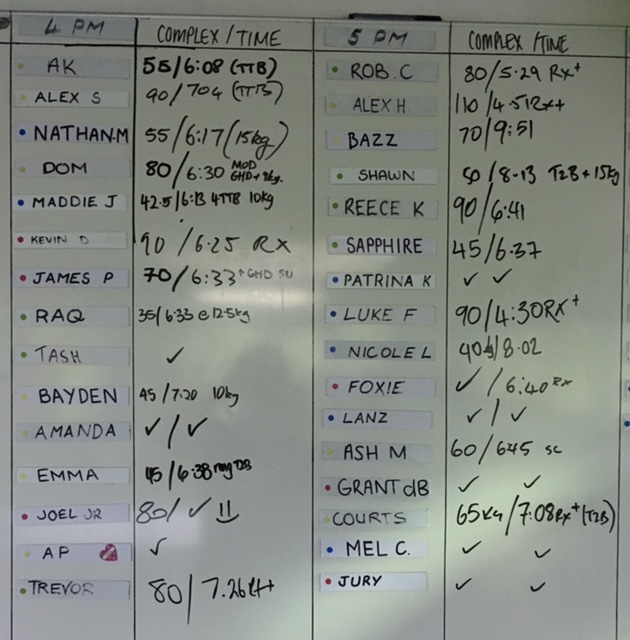 4 PM COMPLEX / TIME
AK 55/6:08 (TTB)
ALEX S 90/704 (TTB)
NATHAN.M 55/6:17 (15kg)
DOM 80/6:30 MOD GHD+9kg.
MADDIE J 42.5/6:13 4TTB 10kg
KEVIN D 90/6.25 RX
JAMES P 70/6:33 +GHD SU
RAQ 35/6:33 @ 12.5kg
TASH ✓
BAYDEN 45/7:20 10kg
AMANDA ✓/✓
EMMA 45/6:38 DB
JOEL JR 80/✓
AP ✓
TREVOR 80/7.26 RX+
5 PM COMPLEX / TIME
ROB.C 80/5.29 RX+
ALEX H. 110/4.51RX+
BAZZ 70/9:51
SHAWN 50/8.13 T2B + 15kg
REECE K 90/6:41
SAPPHIRE 45/6.37
PATRINA K ✓ ✓
LUKE F 90/4:30RX+
NICOLE L 40/8.02
FOXIE ✓/6:40 RX
LANZ ✓/✓
ASH M 60/645 SC
GRANT dB ✓ ✓
COURTS 65kg/7:08RX+ (T2B)
MEL C. ✓ ✓
JURY ✓ ✓